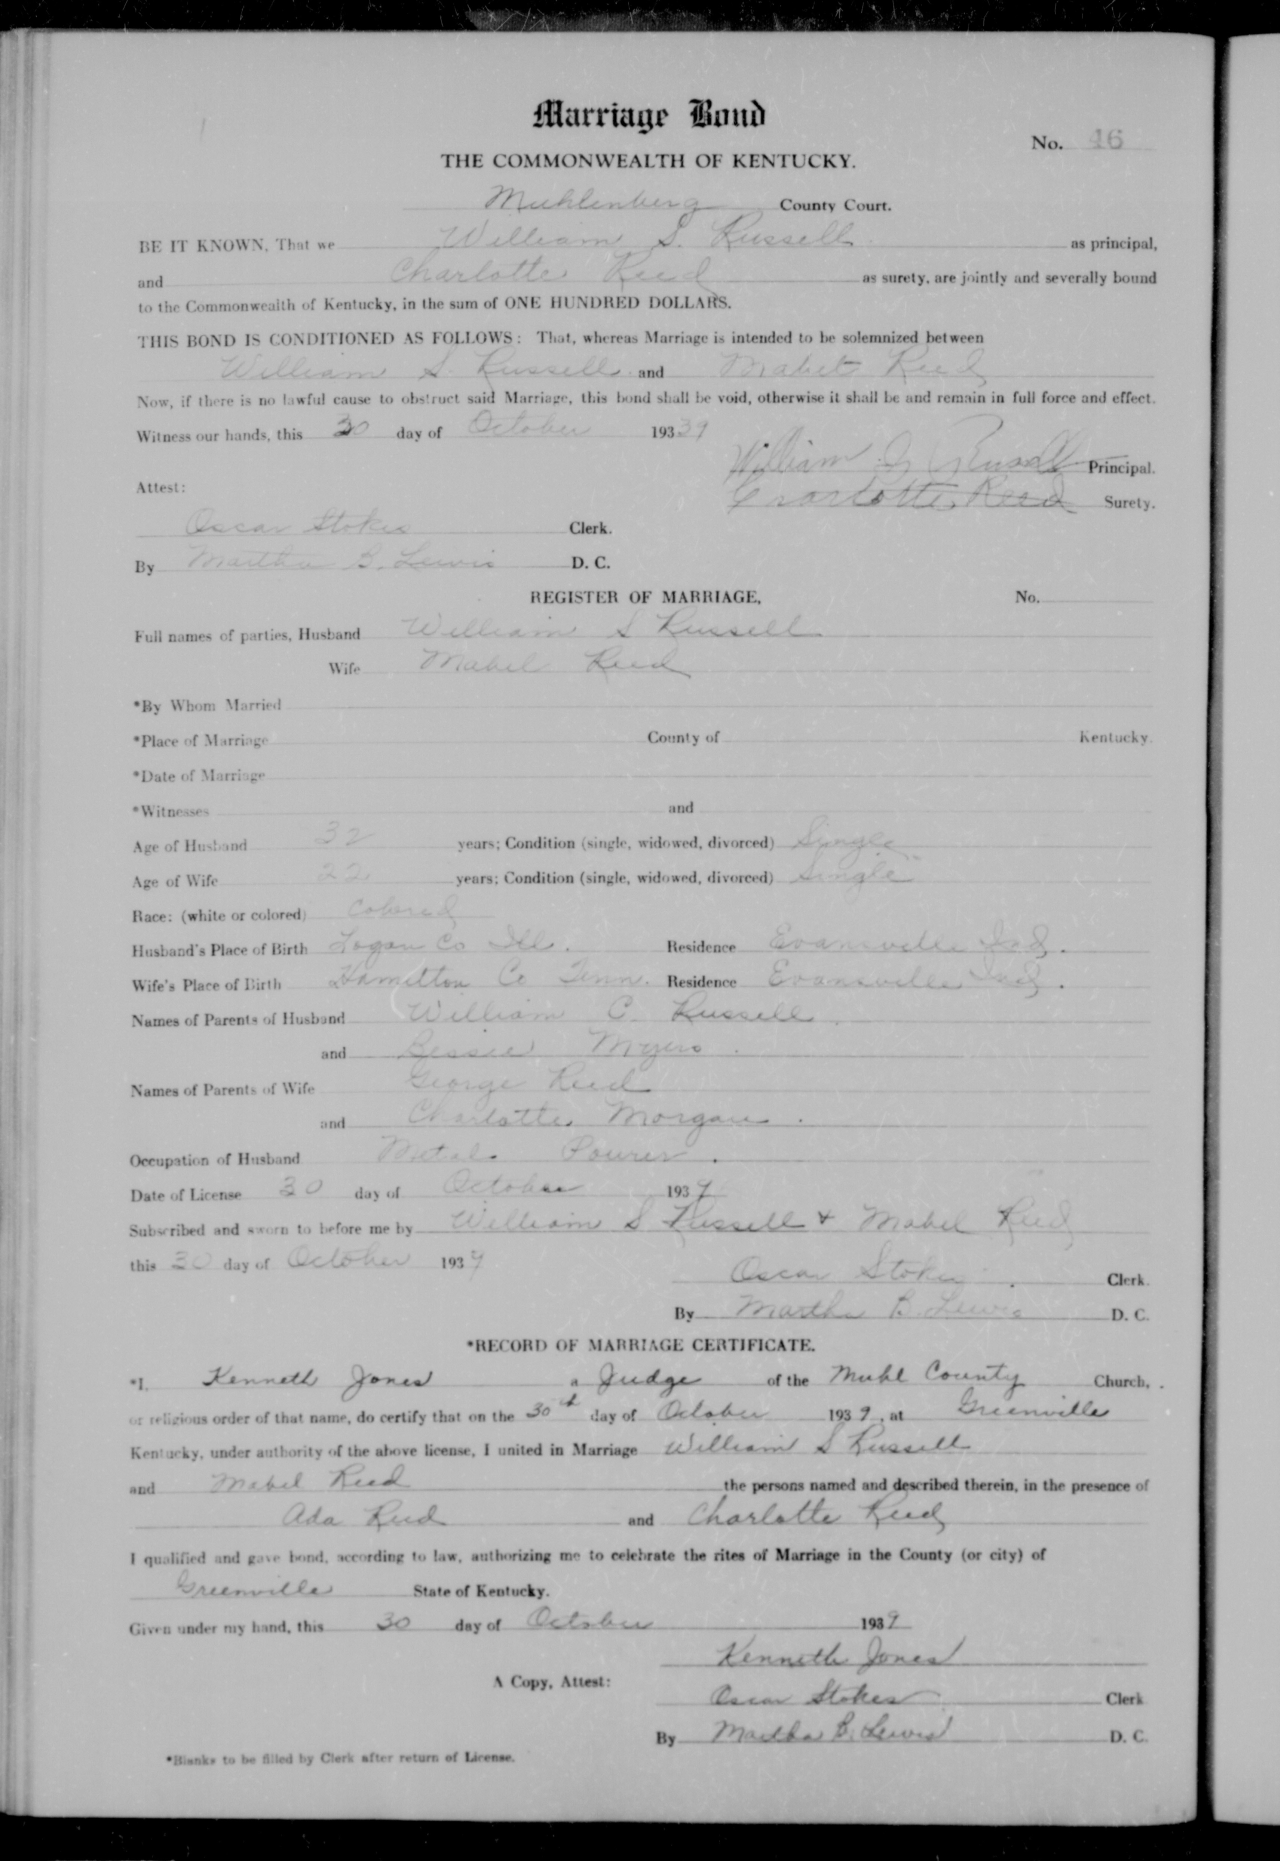 Marriage Bond
No. 46
THE COMMONWEALTH OF KENTUCKY.
Muhlenberg County Court.
BE IT KNOWN, That we William S. Russell as principal,
and Charlotte Reed as surety, are jointly and severally bound
to the Commonwealth of Kentucky, in the sum of ONE HUNDRED DOLLARS.
THIS BOND IS CONDITIONED AS FOLLOWS: That, whereas Marriage is intended to be solemnized between
William S. Russell and Mabel Reed
Now, if there is no lawful cause to obstruct said Marriage, this bond shall be void, otherwise it shall be and remain in full force and effect.
Witness our hands, this 30 day of October 19339
William S. Russell Principal.
Attest:
Charlotte Reed Surety.
Oscar Stokes Clerk.
By Martha B. Lewis D. C.
REGISTER OF MARRIAGE, No.
Full names of parties, Husband William S Russell
Wife Mabel Reed
*By Whom Married
*Place of Marriage County of Kentucky.
*Date of Marriage
*Witnesses and
Age of Husband 32 years; Condition (single, widowed, divorced) Single
Age of Wife 22 years; Condition (single, widowed, divorced) Single
Race: (white or colored) Colored
Husband's Place of Birth Logan Co Ill. Residence Evansville Ind.
Wife's Place of Birth Hamilton Co Tenn. Residence Evansville Ind.
Names of Parents of Husband William C. Russell
and Bessie Myers.
Names of Parents of Wife George Reed
and Charlotte Morgan.
Occupation of Husband Metal Pourer.
Date of License 30 day of October 1939
Subscribed and sworn to before me by William S Russell & Mabel Reed
this 30 day of October 1939
Oscar Stokes. Clerk.
By Martha B. Lewis D. C.
*RECORD OF MARRIAGE CERTIFICATE.
*I, Kenneth Jones a Judge of the Muhl County Church,
or religious order of that name, do certify that on the 30th day of October 1939, at Greenville
Kentucky, under authority of the above license, I united in Marriage William S Russell
and Mabel Reed the persons named and described therein, in the presence of
Ada Reed and Charlotte Reed
I qualified and gave bond, according to law, authorizing me to celebrate the rites of Marriage in the County (or city) of
Greenville State of Kentucky.
Given under my hand, this 30 day of October 1939
Kenneth Jones
A Copy, Attest:
Oscar Stokes Clerk
By Martha B. Lewis D. C.
*Blanks to be filled by Clerk after return of License.